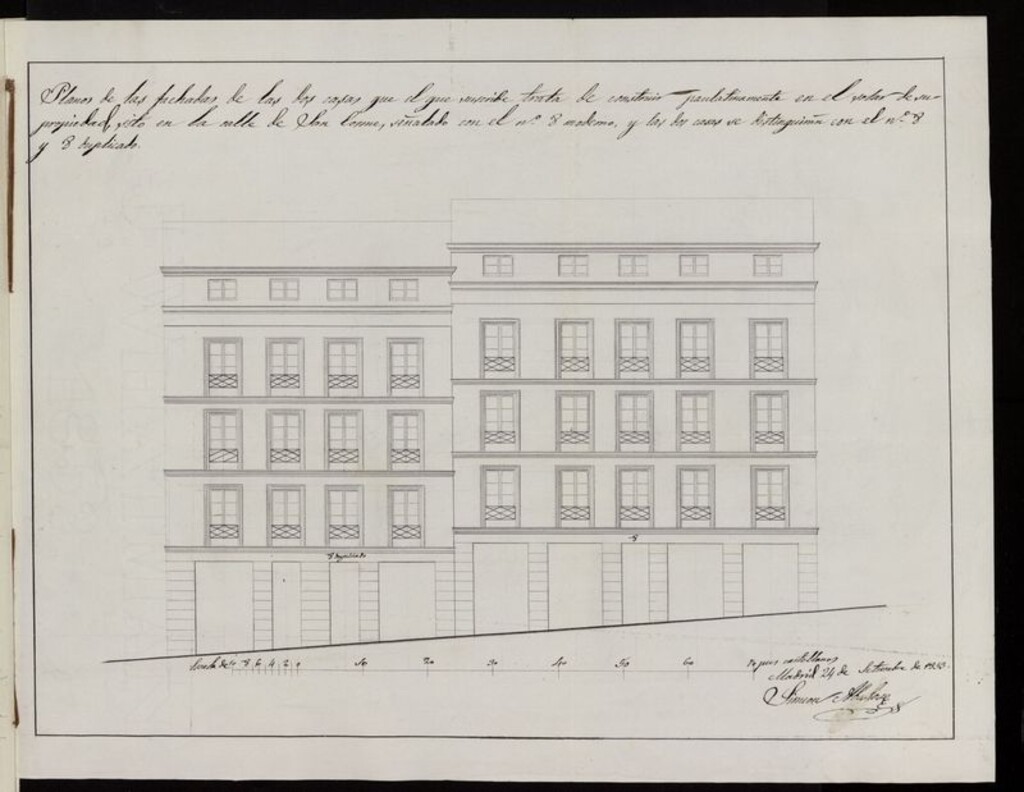 Planos de las fachadas de las dos casas que el que suscribe trata de construir paulatinamente en el solar de su
propiedad, sito en la calle de San Cosme, señalado con el nº 8 moderno, y las dos casas se distinguirán con el nº 8
y 8 duplicado.
8
8 duplicado
Escala de 10 8 6 4 2 0 10 20 30 40 50 60 70 pies castellanos
Madrid 24 de Setiembre de
Simeon